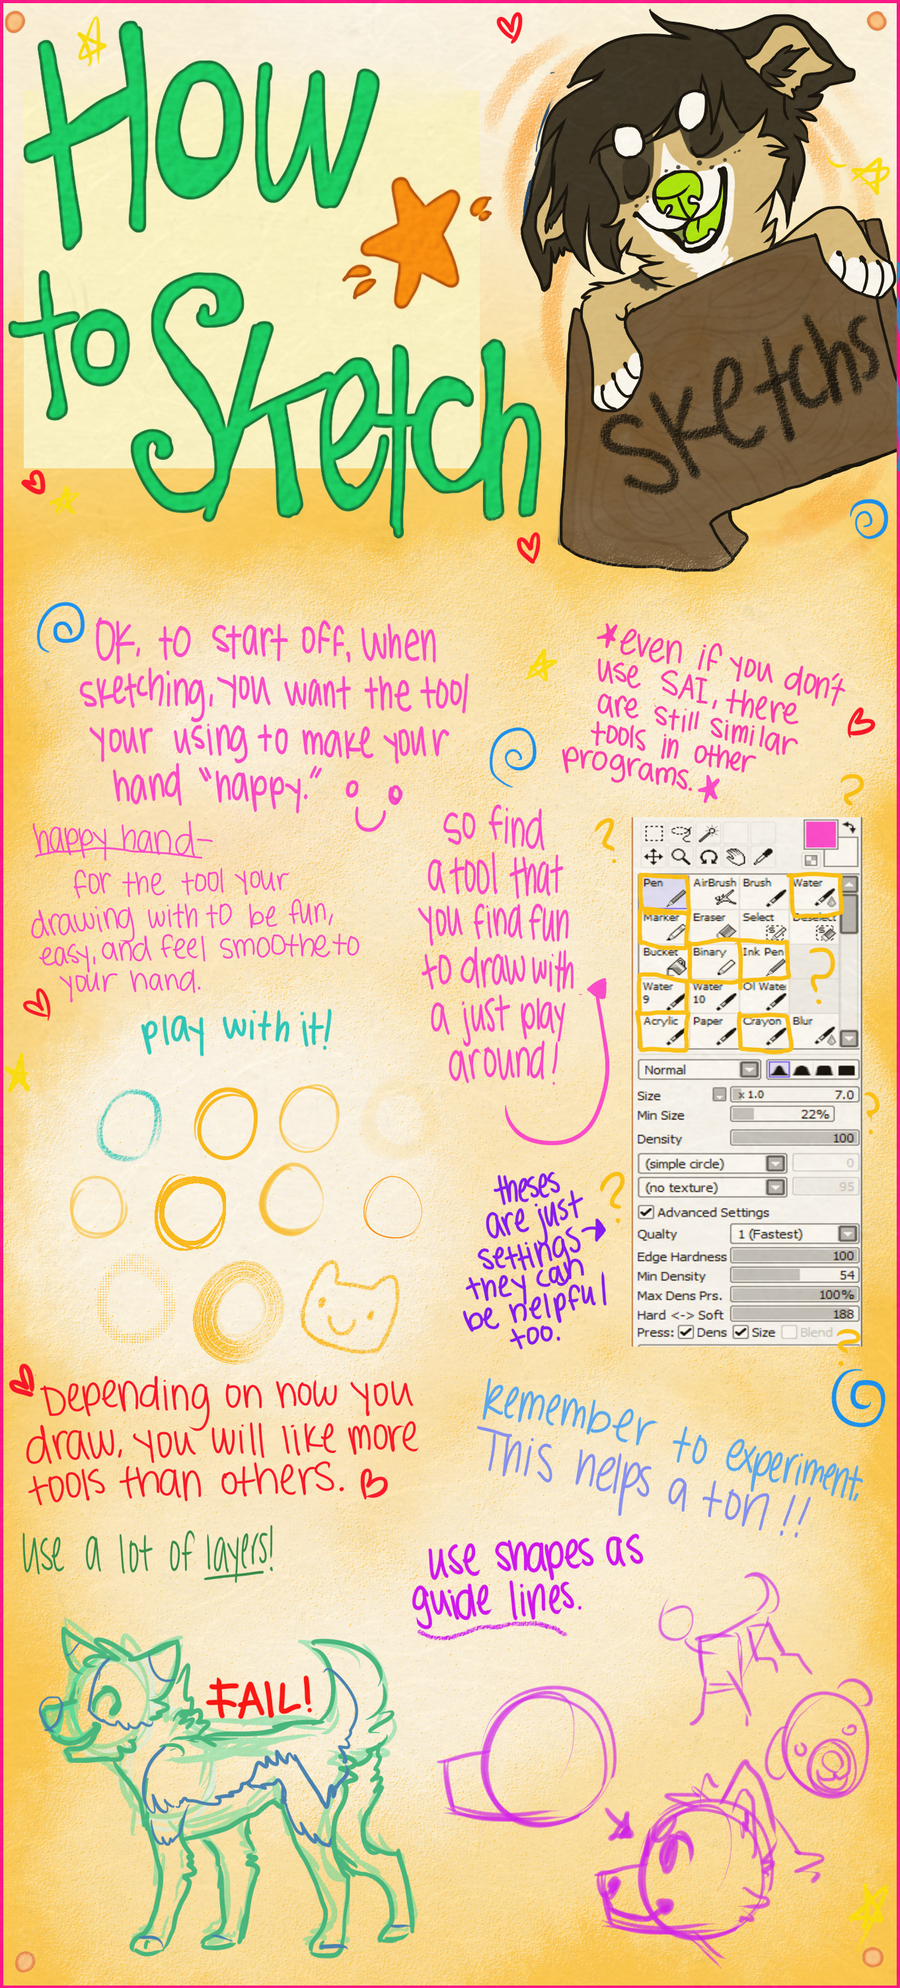 How
to Sketch
sketchs
OK, to start off, when
sketching, you want the tool
your using to make your
hand "happy."
*even if you don't
use SAI, there
are still similar
tools in other
programs.*
happy hand-
for the tool your
drawing with to be fun,
easy, and feel smoothe to
your hand.
so find
a tool that
you find fun
to draw with
a just play
around!
play with it!
Pen AirBrush Brush Water
Marker Eraser Select Deselect
Bucket Binary Ink Pen
Water 9 Water 10 Ol Water
Acrylic Paper Crayon Blur
Normal
Size x 1.0 7.0
Min Size 22%
Density 100
(simple circle) 0
(no texture) 95
Advanced Settings
Qualty 1 (Fastest)
Edge Hardness 100
Min Density 54
Max Dens Prs. 100%
Hard <-> Soft 188
Press: Dens Size Blend
theses
are just
settings
they can
be helpful
too.
Depending on how you
draw, you will like more
tools than others.
Remember to experiment,
This helps a ton!!
use a lot of layers!
use shapes as
guide lines.
FAIL!